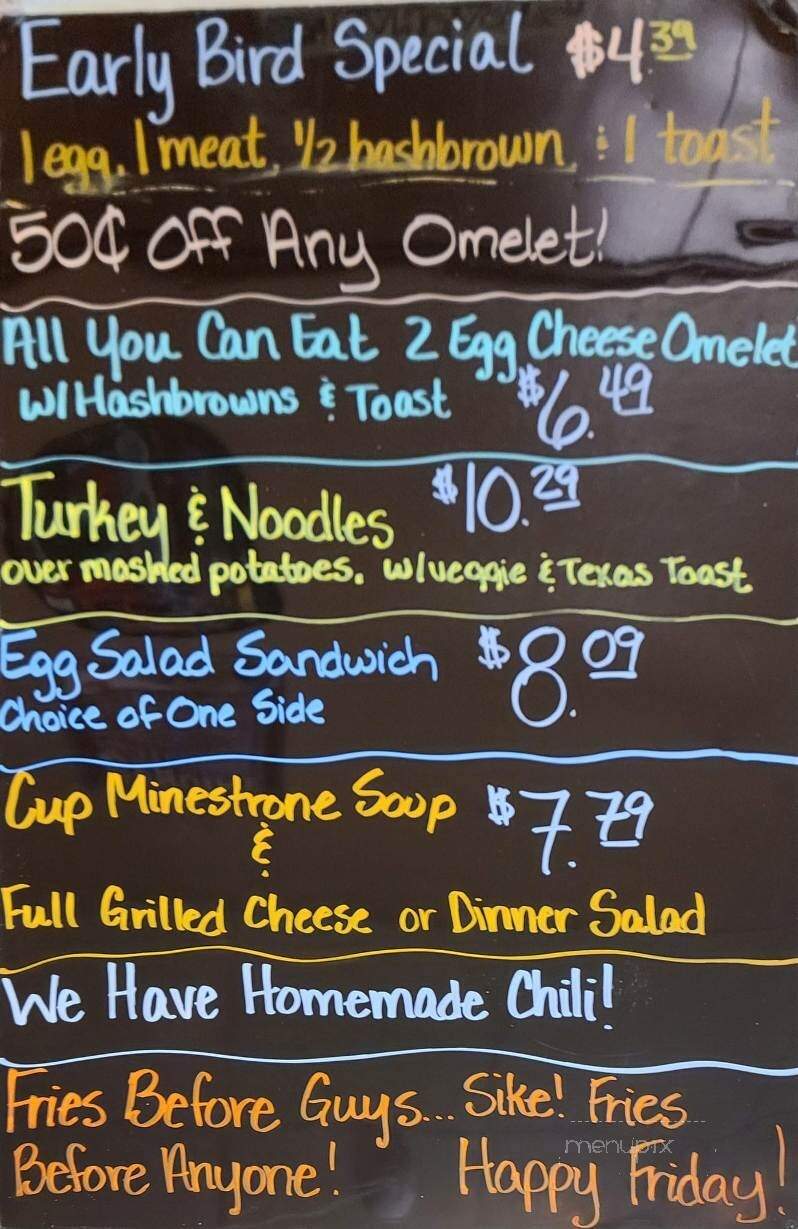 Early Bird Special $4.39
1 egg, 1 meat, 1/2 hashbrown, & 1 toast
50¢ Off Any Omelet!
All You Can Eat 2 Egg Cheese Omelet
w/Hashbrowns & Toast $6.49
Turkey & Noodles $10.29
over mashed potatoes. w/veggie & Texas Toast
Egg Salad Sandwich $8.09
Choice of One Side
Cup Minestrone Soup $7.79
&
Full Grilled Cheese or Dinner Salad
We Have Homemade Chili!
Fries Before Guys... Sike! Fries
menupix
Before Anyone! Happy Friday!